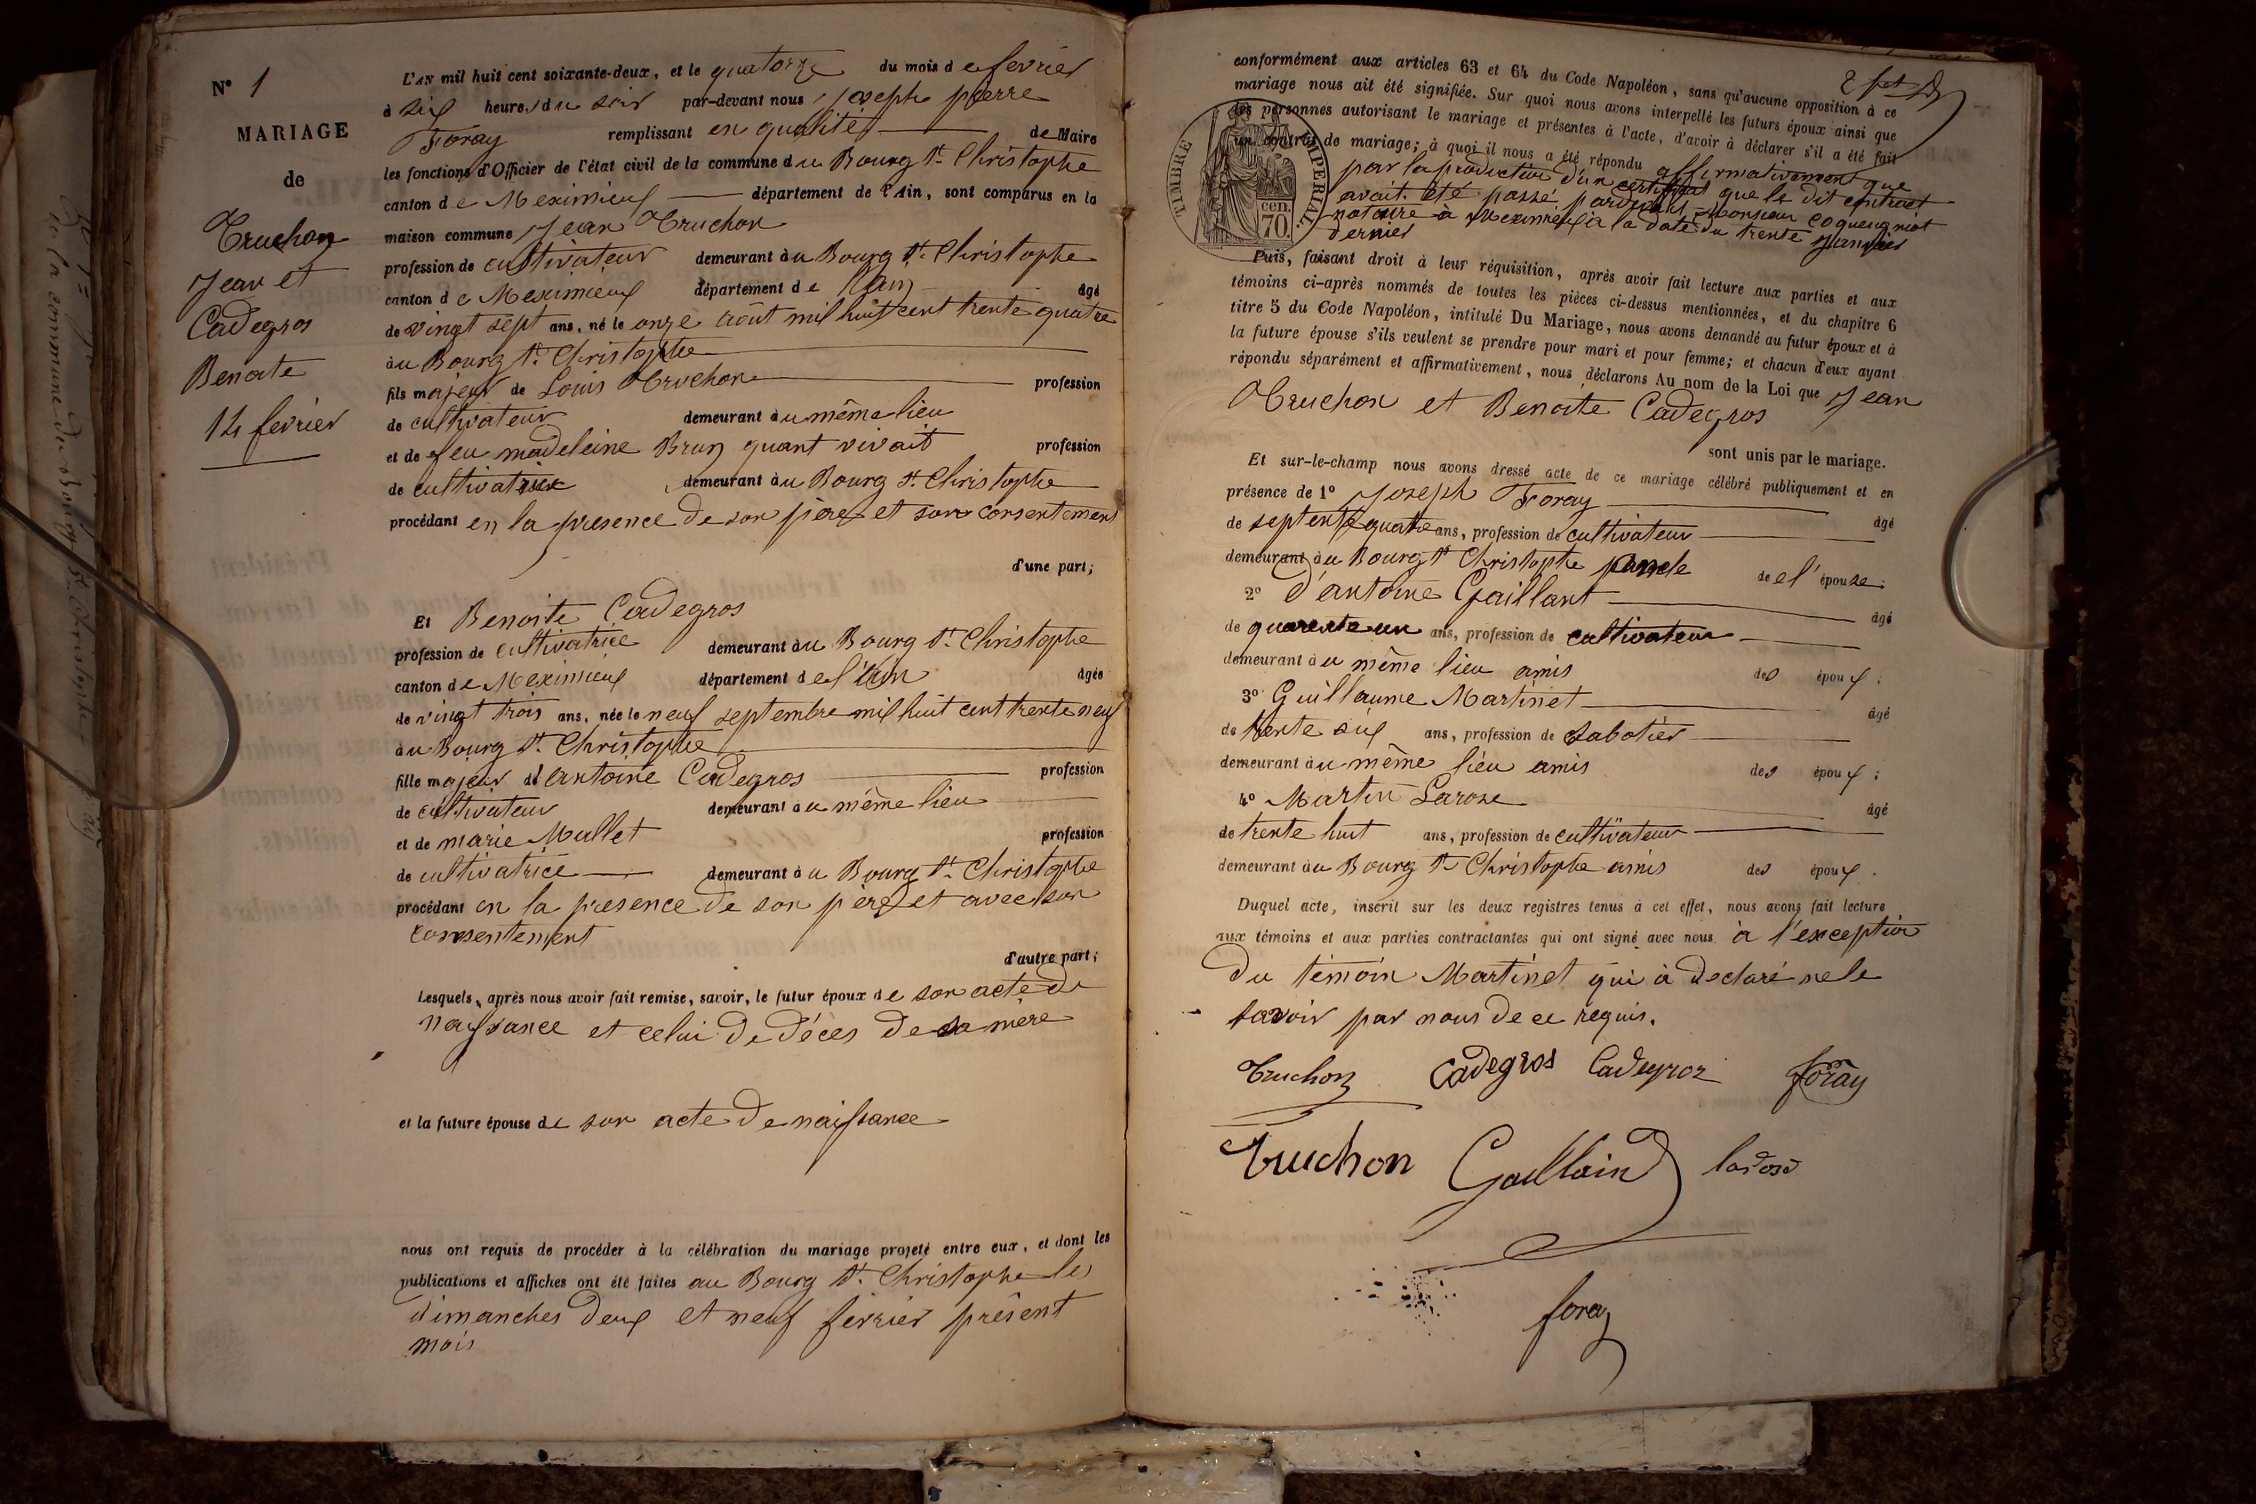 N° 1
MARIAGE
de
Truchon
Jean et
Cadegros
Benoite
14 fevrier
L'AN mil huit cent soixante-deux, et le quatorze du mois de fevrier
à six heures du soir par-devant nous Joseph pierre
Foray remplissant en qualité de Maire
les fonctions d'Officier de l'état civil de la commune du Bourg St. Christophe
canton de Meximieux département de l'Ain, sont comparus en la
maison commune Jean Truchon
profession de cultivateur demeurant au Bourg St. Christophe
canton de Meximieux département de l'ain âgé
de vingt sept ans, né le onze août mil huit cent trente quatre
au Bourg St. Christophe
fils majeur de Louis Truchon profession
de cultivateur demeurant au même lieu
et de feu madeleine Brun quant vivait profession
de cultivatrice demeurant au Bourg St. Christophe
procédant en la presence de son père et son consentement
d'une part;
Et Benoite Cadegros
profession de cultivatrice demeurant au Bourg St. Christophe
canton de Meximieux département de l'Ain âgée
de vingt trois ans, née le neuf septembre mil huit cent trente neuf
au Bourg St. Christophe
fille majeur d'antoine Cadegros profession
de cultivateur demeurant au même lieu
et de marie Mallet profession
de cultivatrice demeurant au Bourg St. Christophe
procédant en la presence de son père et avec son
consentement
d'autre part;
Lesquels, après nous avoir fait remise, savoir, le futur époux de son acte de
naissance et celui de décès de sa mère
et la future épouse de son acte de naissance
nous ont requis de procéder à la célébration du mariage projeté entre eux, et dont les
publications et affiches ont été faites au Bourg St. Christophe les
dimanches deux et neuf février présent
mois
conformément aux articles 63 et 64 du Code Napoléon, sans qu'aucune opposition à ce
mariage nous ait été signifiée. Sur quoi nous avons interpellé les futurs époux ainsi que
les personnes autorisant le mariage et présentes à l'acte, d'avoir à déclarer s'il a été fait
un contrat de mariage; à quoi il nous a été répondu affirmativement que
par la production d'un certificat que le dit contrat
avait été passé pardevant Monsieur Coquengniot
notaire à Meximieux à la date du trente janvier
dernier
TIMBRE IMPERIAL
70 cen.
Puis, faisant droit à leur réquisition, après avoir fait lecture aux parties et aux
témoins ci-après nommés de toutes les pièces ci-dessus mentionnées, et du chapitre 6
titre 5 du Code Napoléon, intitulé Du Mariage, nous avons demandé au futur époux et à
la future épouse s'ils veulent se prendre pour mari et pour femme; et chacun d'eux ayant
répondu séparément et affirmativement, nous déclarons Au nom de la Loi que Jean
Truchon et Benoite Cadegros
sont unis par le mariage.
Et sur-le-champ nous avons dressé acte de ce mariage célébré publiquement et en
présence de 1° Joseph Foray âgé
de septente quatre ans, profession de cultivateur
demeurant au Bourg St Christophe de l'épouse;
2° d'antoine Gaillant âgé
de quarente un ans, profession de cultivateur
demeurant au même lieu amis des époux;
3° Guillaume Martinet âgé
de trente six ans, profession de sabotier
demeurant au même lieu amis des époux;
4° Martin Larose âgé
de trente huit ans, profession de cultivateur
demeurant au Bourg St Christophe amis des époux.
Duquel acte, inscrit sur les deux registres tenus à cet effet, nous avons fait lecture
aux témoins et aux parties contractantes qui ont signé avec nous à l'exception
du témoin Martinet qui à declaré ne le
savoir par nous de ce requis.
Truchon Cadegros Cadegros foray
truchon Gaillain larose
foray